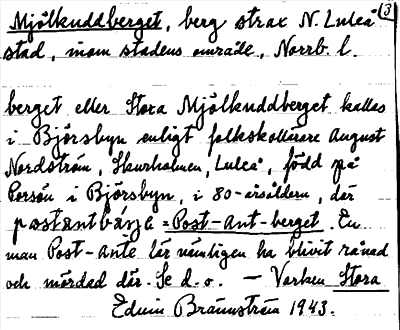 Mjölkuddberget, berg strax N. Luleå (3)
stad, inom stadens område, Norrb. l.
berget eller Stora Mjölkuddberget kallas
i Björsbyn enligt folkskollärare August
Nordström, Skurholmen, Luleå, född på
Persön i Björsbyn, i 80-årsåldern, där
postantbärje = Post-Ant-berget. En
man Post-Ante lär nämligen ha blivit rånad
och mördad där. Se d.o. — Varken Stora
Edvin Brännström 1943.